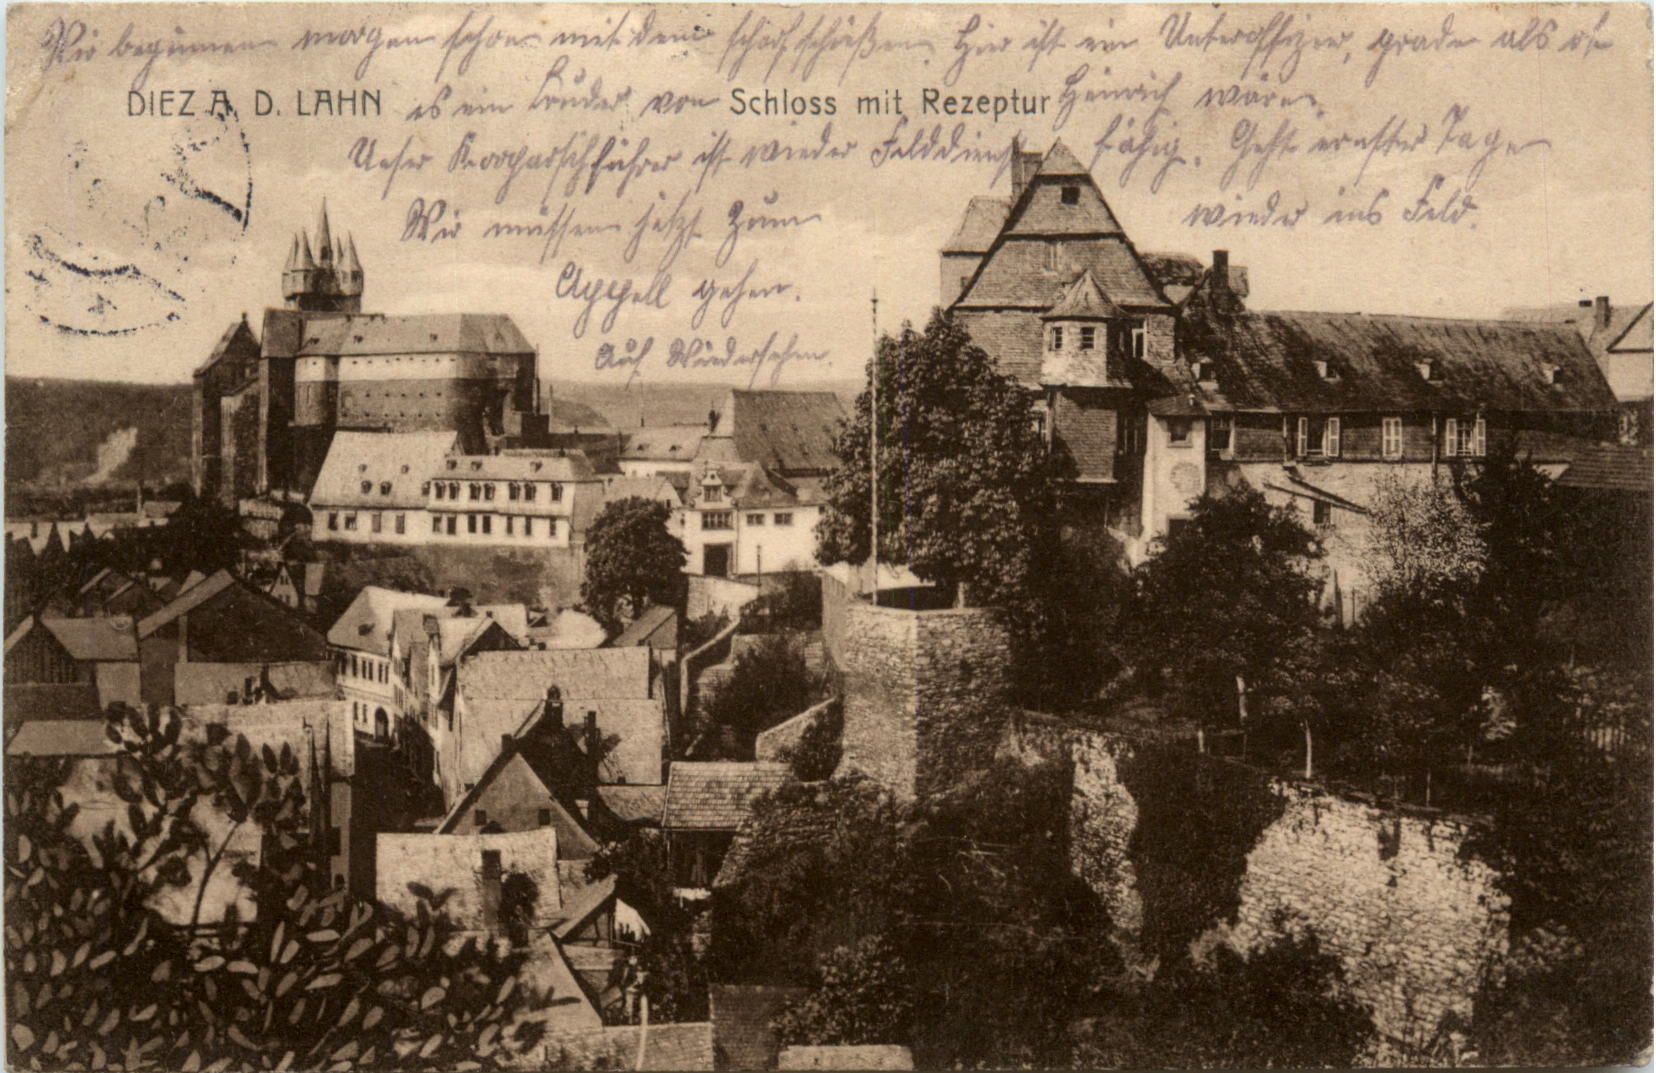 Wir beginnen morgen schon mit dem scharfschießen. Hier ist ein Unteroffizier, grade als ob
DIEZ A. D. LAHN
es ein Bruder von Heinrich wäre.
Schloss mit Rezeptur
Unser Korporalschführer ist wieder Felddienst fähig. Geht ernster Tage
wieder ins Feld.
Wir müssen jetzt zum
Appell gehen.
Auf Wiedersehen.